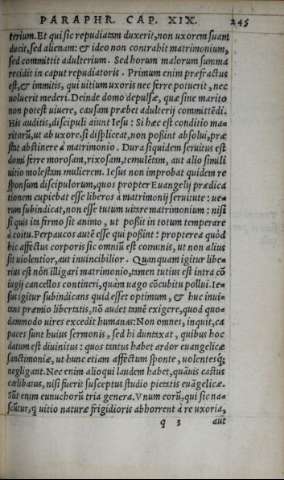 PARAPHR. CAP. XIX. 245
terium. Et qui sic repudiatam duxerit, non uxorem suam
ducit, sed alienam: & ideo non contrahit matrimonium,
sed committit adulterium. Sed horum malorum summa
recidit in caput repudiatoris. Primum enim præfractus
est, & immitis, qui uitium uxoris nec ferre potuerit, nec
uoluerit mederi. Deinde domo depulsæ, quæ sine marito
non potest uiuere, causam præbet adulterij committēdi.
His auditis, discipuli aiunt Iesu: Si hæc est conditio ma
ritorū, ut ab uxore, si displiceat, non possint absolui, præ
stat abstinere à matrimonio. Dura siquidem seruitus est
domi ferre morosam, rixosam, temulētam, aut alio simili
uitio molestam mulierem. Iesus non improbat quidem re
sponsum discipulorum, quos propter Euangelij prædica
tionem cupiebat esse liberos à matrimonij seruitute: ue=
rum subindicat, non esse tutum uitare matrimonium: nisi
si quis tam firmo sit animo, ut possit in totum temperare
à coitu. Perpaucos autē esse qui possint: propterea quòd
hic affectus corporis sic omniū est comunis, ut non alius
sit uiolentior, aut inuincibilior. Quanquam igitur libe=
rius est nō illigari matrimonio, tamen tutius est intra cō
iugij cancellos contineri, quàm uago cōcubitu pollui. Ie=
sus igitur subindicans quid esset optimum, & huc inui=
tans præmio libertatis, nō audet tamē exigere, quod quo=
dammodo uires excedit humanas: Non omnes, inquit, ca
paces sunt huius sermonis, sed hi duntaxat, quibus hoc
datum est diuinitus: quos tantus habet ardor euangelicæ
sanctimoniæ, ut hunc etiam affectum sponte, uolentesq;
negligant. Nec enim alioqui laudem habet, quāuis castus
cœlibatus, nisi fuerit susceptus studio pietatis euāgelicæ.
Sūt enim eunuchorū tria genera. Vnum eorū, qui sic na=
scūtur, q uitio naturæ frigidioris abhorrent à re uxoria,
q 3 aut